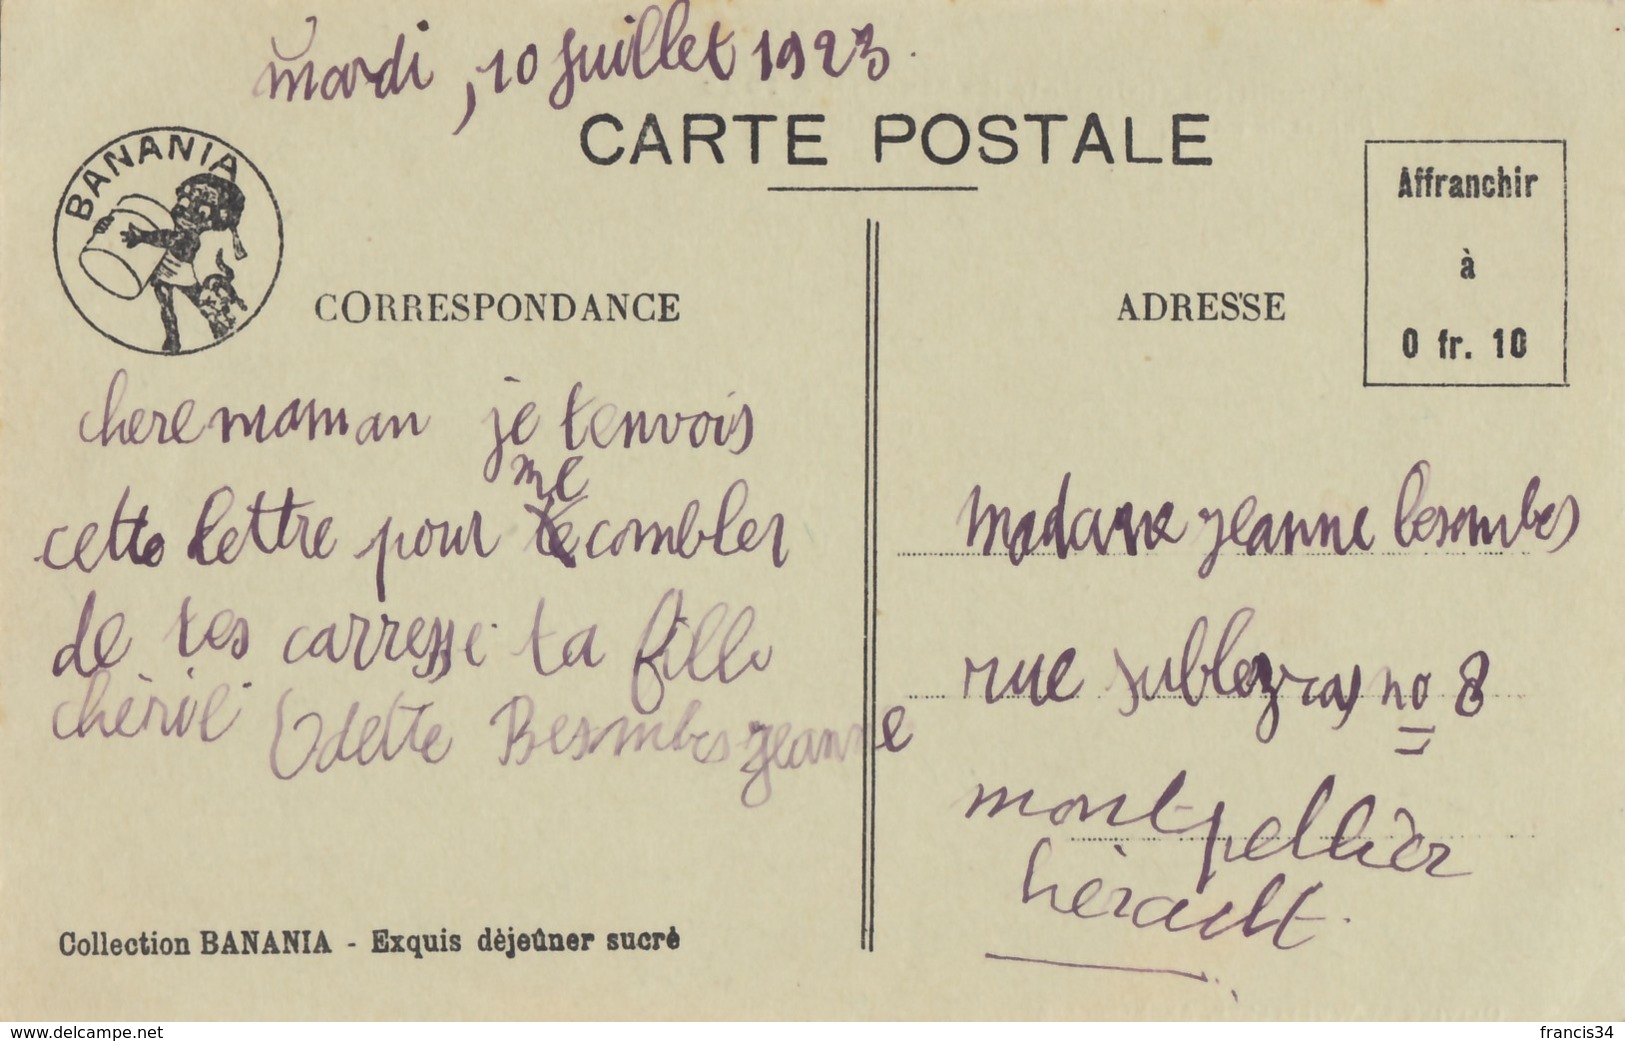 mardi, 10 juillet 1923.
CARTE POSTALE
BANANIA
Affranchir
à
0 fr. 10
CORRESPONDANCE
chere maman je tenvois
me
cette lettre pour te combler
de tes carresse ta fille
chèrie Odette Besombes jeanne
ADRESSE
madame jeanne besombes
rue subleyras no 8
montpellièr
hèrault.
Collection BANANIA - Exquis dèjeûner sucrè
www.delcampe.net
francis34